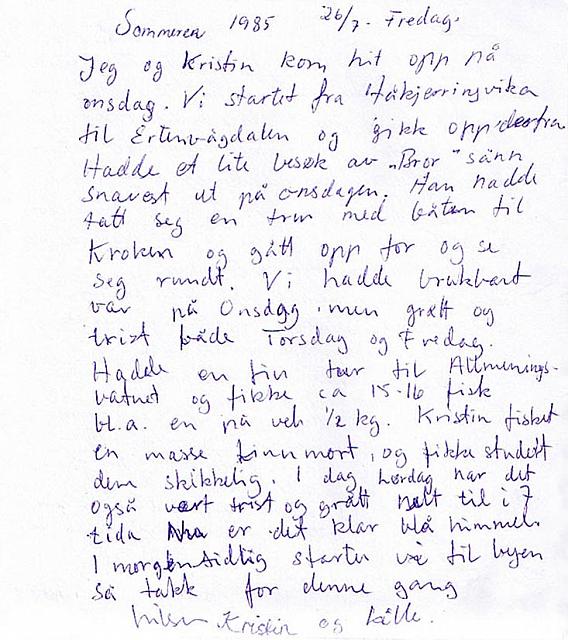 Sommeren 1985 26/7. Fredag.
Jeg og Kristin kom hit opp på
onsdag. Vi startet fra Håkjerringvika
til Ertenvågdalen og gikk opp derfra
Hadde et lite besøk av "Bror" sånn
snavest ut på onsdagen. Han hadde
tatt seg en trur med båten til
Kroken og gått opp for og se
seg rundt. Vi hadde brukbart
vær på Onsdag men grått og
trist både Torsdag og Fredag.
Hadde en fin tur til Allmennings-
vatnet og fikke ca 15-16 fisk
bl.a. en på vel 1/2 kg. Kristin fisket
en masse finnmort, og fikke studert
dem skikkelig. I dag Lørdag har det
også vært trist og grått helt til i 7
tida Nå er det klar blå himmel.
I morgen tidlig starter vi til byen
så takk for denne gang
hilsen Kristin og Kalle.